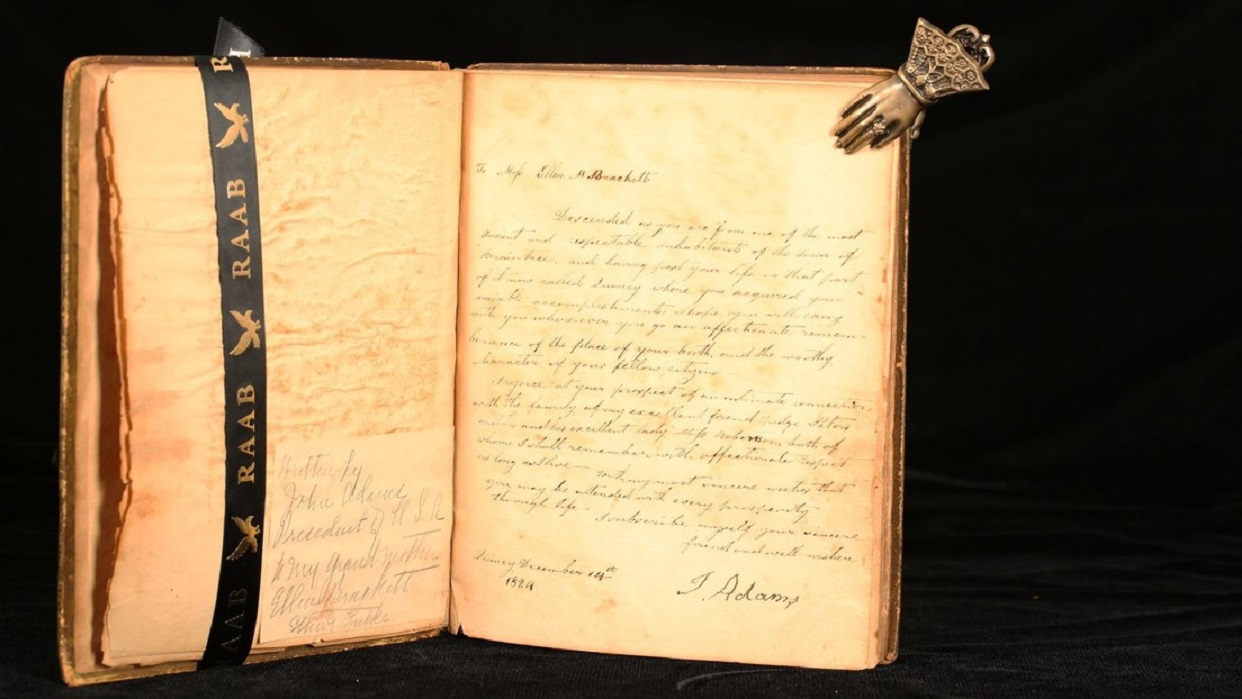 RAAB
RAAB
RAAB
Written by
John Adams
President of U S A
to my Grand Mother
Ellen Brackett
To Miss Ellen M Brackett
Descended as you are from one of the most
ancient and respectable inhabitants of the town of
Braintree, and having past your life in that part
of it now called Quincy where you acquired your
amiable accomplishments, I hope you will carry
with you wheresoever you go an affectionate remem-
berance of the place of your birth, and the worthy
character of your fellow citizens.
I rejoice at your prospect of an intimate connection
with the family of my excellent friend Judge
and his excellent Lady Miss both of
whome I shall remember with affectionate respect
as long as I live — with my most sincere wishes that
you may be attended with every prosperity
through life — I subscribe myself your sincere
friend and well wisher
Quincy December 14th
1824
J. Adams